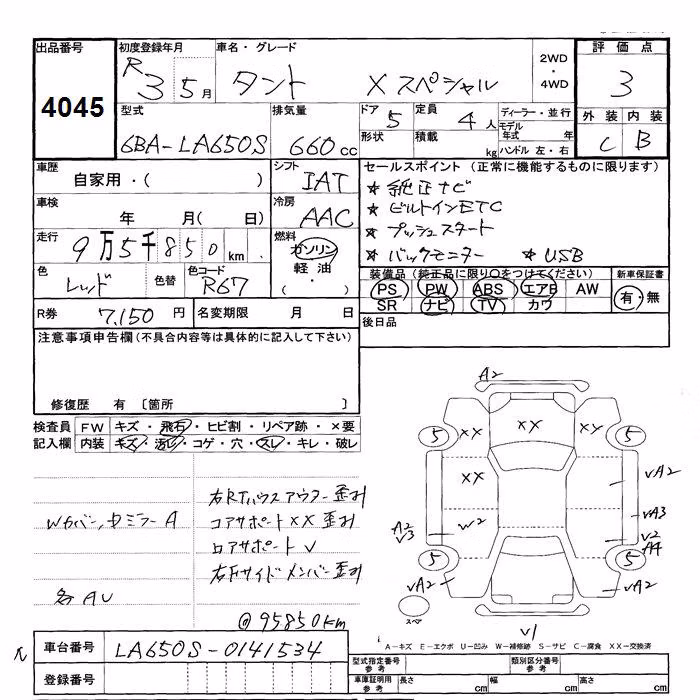 出品番号
4045
初度登録年月
R3 5月
車名・グレード
タント Xスペシャル
2WD
・
4WD
評価点
3
型式
6BA-LA650S
排気量
660 cc
ドア 5
形状
定員 4人
積載 kg
ディーラー・並行
モデル年式 年
ハンドル 左・右
外装 内装
C B
車歴
自家用・( )
シフト
IAT
セールスポイント (正常に機能するものに限ります)
★純正ナビ
★ビルトインETC
★プッシュスタート
★バックモニター ★USB
車検
年 月( 日)
冷房
AAC
走行
9万5千850km
燃料
ガソリン
軽油
( ・ )
色
レッド
色替
色コード
R67
装備品(純正品に限り○をつけてください)
PS PW ABS エアB AW
SR ナビ TV カワ
新車保証書
有・無
R券 7,150円
名変期限 月 日
後日品
注意事項申告欄(不具合内容等は具体的に記入して下さい)
修復歴 有 〔箇所 〕
検査員記入欄
FW キズ・飛石・ヒビ割・リペア跡・×要
内装 キズ・汚レ・コゲ・穴・スレ・キレ・破レ
Wカバー、ドミラーA
各AU
右Rタハウスアウター歪み
コアサポートXX歪み
ロアサポートV
右Fサイドメンバー歪み
@95850km
A2
5
XX
XX
5
XX
VA2
W2
VA3
A2
V3
V2
A4
5
5
VA2
VA2
スペ
V1
A-キズ E-エクボ U-凹み W-補修跡 S-サビ C-腐食 XX-交換済
車台番号
LA650S-0141534
登録番号
型式指定番号
参考
類別区分番号
参考
車庫証明用
参考
長さ cm
幅 cm
高さ cm